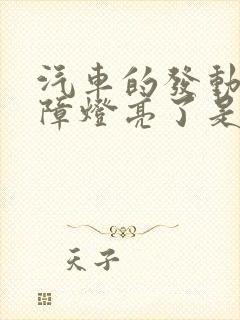 汽車的發動
障燈亮了是
天子